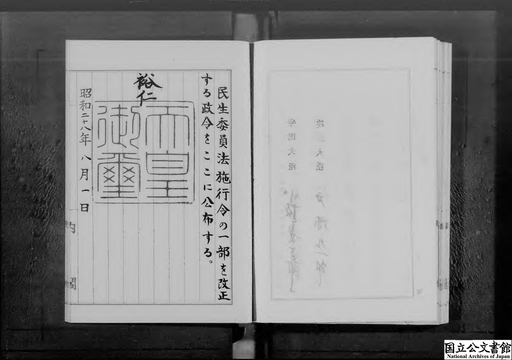 民生委員法施行令の一部を改正
する政令をここに公布する。
裕仁
天皇
御璽
昭和二十八年八月一日
内閣
国立公文書館
National Archives of Japan